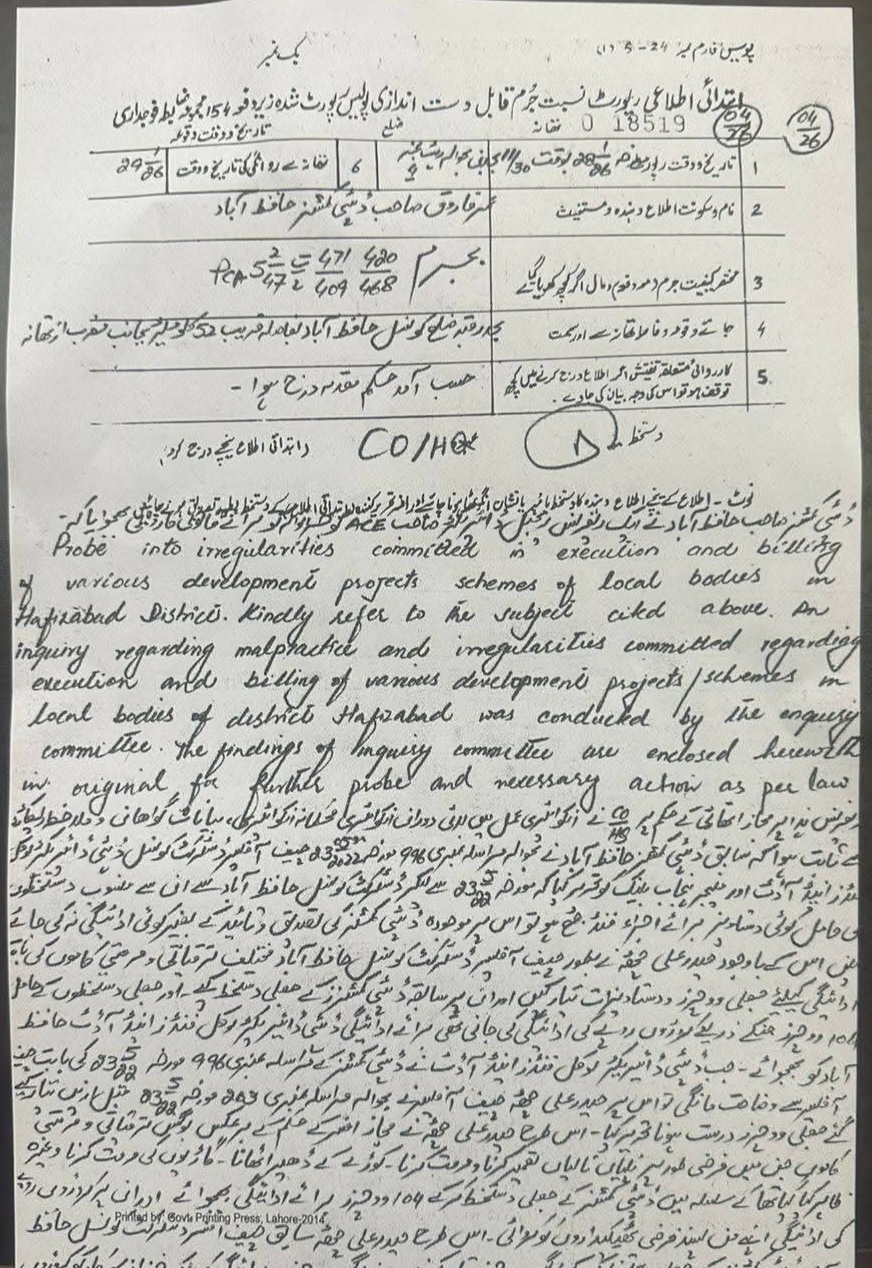 پولیس فارم نمبر 24-5 (1)
بک نمبر
ابتدائی اطلاعی رپورٹ نسبت جرم قابل دست اندازی پولیس رپورٹ شدہ زیر دفعہ 154 مجموعہ ضابطہ فوجداری
04/26
04/26
0 18519 تھانہ
ضلع
تاریخ و وقت وقوعہ
1 تاریخ و وقت رپورٹ 28 1/26 بوقت 11/30
6 تھانہ سے روانگی کی تاریخ و وقت 29 1/26
2 نام و سکونت اطلاع دہندہ و مستغیث
عمر فاروق صاحب ڈپٹی کمشنر حافظ آباد
3 مختصر کیفیت جرم (معہ دفعہ) و مال اگر کچھ کھویا گیا ہے
بجرم 420/468 471/409 ت پ 5 2/47 PCA
4 جائے وقوعہ و فاصلہ تھانہ سے اور سمت
ضلع کونسل حافظ آباد بفاصلہ قریب 52 کلومیٹر بجانب مغرب از تھانہ
5. کارروائی متعلقہ تفتیش اگر اطلاع درج کرنے میں کچھ توقف ہو تو اس کی وجہ بیان کی جاوے۔
حسب آمد حکم مقدمہ درج ہوا -
دستخط
CO/HQ
(ابتدائی اطلاع نیچے درج کرو)
نوٹ - اطلاع کے نیچے اطلاع دہندہ کا دستخط یا مہر یا نشان انگوٹھا ہونا چاہئے
ڈپٹی کمشنر صاحب حافظ آباد نے ایک ریفرنس ریجنل ڈائریکٹر صاحب ACE گوجرانوالہ کو برائے قانونی کارروائی بھجوایا کہ۔
Probe into irregularities committed in execution and billing
of various development projects schemes of local bodies in
Hafizabad District. Kindly refer to the subject cited above. An
inquiry regarding malpractice and irregularities committed regarding
execution and billing of various development projects/schemes in
local bodies of district Hafizabad was conducted by the enquiry
committee. The findings of inquiry committee are enclosed herewith
in original for further probe and necessary action as per law
ریفرنس ہذا پر مجاز اتھارٹی کے حکم پر CO/HQ نے انکوائری عمل میں لائی دوران انکوائری بیانات گواہان و ملاحظہ ریکارڈ
سے ثابت ہوا کہ سابق ڈپٹی کمشنر حافظ آباد نے بحوالہ مراسلہ نمبری 996 مورخہ چیف آفیسر ڈسٹرکٹ کونسل ڈپٹی ڈائریکٹر لوکل
فنڈز اینڈ آڈٹ اور منیجر پنجاب بینک کو تحریر کیا کہ مورخہ 23 5/22 سے لیکر ڈسٹرکٹ کونسل حافظ آباد سے ان سے منسوب دستخطوں
کی حامل کوئی دستاویز برائے اجراء فنڈ جمع ہو تو اس پر موجودہ ڈپٹی کمشنر کی تصدیق و تائید کے بغیر کوئی ادائیگی نہ کی جائے
لیکن اس کے باوجود حیدر علی چٹھہ نے بطور چیف آفیسر ڈسٹرکٹ کونسل حافظ آباد مختلف ترقیاتی و مرمتی کاموں کی بابت
ادائیگی کیلئے جعلی ووچرز و دستاویزات تیار کیں اور ان پر سابقہ ڈپٹی کمشنرز کے جعلی دستخط کیے۔ اور جعلی دستخطوں کے حامل
104 ووچرز جنکے ذریعے کروڑوں روپے کی ادائیگی کی جانی تھی برائے ادائیگی ڈپٹی ڈائریکٹر لوکل فنڈز اینڈ آڈٹ حافظ
آباد کو بھجوائے - جب ڈپٹی ڈائریکٹر لوکل فنڈز اینڈ آڈٹ نے ڈپٹی کمشنر کے مراسلہ نمبری 996 مورخہ 23 5/22 کی بابت چیف
آفیسر سے وضاحت مانگی تو اس پر حیدر علی چٹھہ چیف آفیسر نے بحوالہ مراسلہ نمبری 293 مورخہ 23 5/22 قبل ازیں تیار کیے
گئے جعلی ووچرز درست ہونا تحریر کیا - اس طرح حیدر علی چٹھہ نے مجاز افسر کے حکم کے برعکس بوگس ترقیاتی و مرمتی
کاموں جن میں فرضی طور پر نلیاں نالیاں تعمیر کرنا و مرمت کرنا - کوڑے کے ڈھیر اٹھانا - گاڑیوں کی مرمت کرنا وغیرہ
ظاہر کیا گیا تھا کے سلسلہ میں ڈپٹی کمشنر کے جعلی دستخط کر کے 104 ووچرز برائے ادائیگی بھجوائے اور ان پر کروڑوں روپے
Printed by: Govt. Printing Press, Lahore-2014
کی ادائیگی اپنے من پسند فرضی ٹھیکیداروں کو کروائی - اس طرح حیدر علی چٹھہ سابق چیف آفیسر ڈسٹرکٹ کونسل حافظ